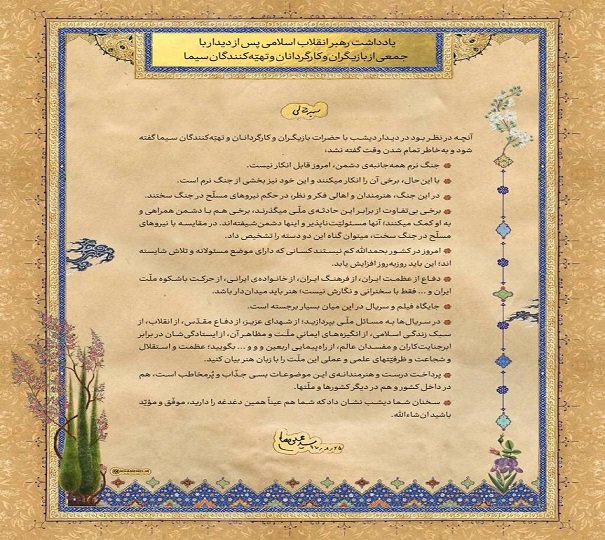 یادداشت رهبر انقلاب اسلامی پس از دیدار با
جمعی از بازیگران و کارگردانان و تهیّه‌کنندگان سیما
آنچه در نظر بود در دیدار دیشب با حضرات بازیگران و کارگردانان و تهیّه‌کنندگان سیما گفته
شود و به‌خاطر تمام شدن وقت گفته نشد:
جنگ نرم همه‌جانبه‌ی دشمن، امروز قابل انکار نیست.
با این حال، برخی آن را انکار میکنند و این خود نیز بخشی از جنگ نرم است.
در این جنگ، هنرمندان و اهالی فکر و نظر، در حکم نیروهای مسلّح در جنگ سختند.
برخی بی‌تفاوت از برابر این حادثه‌ی ملّی میگذرند، برخی هم با دشمن همراهی و
به او کمک میکنند؛ آنها مسئولیّت‌ناپذیر و اینها دشمن‌شیفته‌اند. در مقایسه با نیروهای
مسلّح در جنگ سخت، میتوان گناه این دو دسته را تشخیص داد.
امروز در کشور بحمدالله کم نیستند کسانی که دارای موضع مسئولانه و تلاش شایسته
اند؛ این باید روزبه‌روز افزایش یابد.
دفاع از عظمت ایران، از فرهنگ ایران، از خانواده‌ی ایرانی، از حرکت باشکوه ملّت
ایران و ... فقط با سخنرانی و نگارش نیست؛ هنر باید میدان‌دار باشد.
جایگاه فیلم و سریال در این میان بسیار برجسته است.
در سریال‌ها به مسائل ملّی بپردازید؛ از شهدای عزیز، از دفاع مقدّس، از انقلاب، از
سبک زندگی اسلامی، از انگیزه‌های ایمانی ملّت و مظاهر آن، از ایستادگی شان در برابر
ابرجنایت‌کاران و مفسدان عالم، از راه‌پیمایی اربعین و و و ... بگویید؛ عظمت و استقلال
و شجاعت و ظرفیّتهای علمی و عملی این ملّت را با زبان هنر بیان کنید.
پرداخت درست و هنرمندانه‌ی این موضوعات بسی جذّاب و پُرمخاطب است، هم
در داخل کشور و هم در دیگر کشورها و ملّتها.
سخنان شما دیشب نشان داد که شما هم عیناً همین دغدغه را دارید، موفّق و مؤیّد
باشید ان شاءالله.